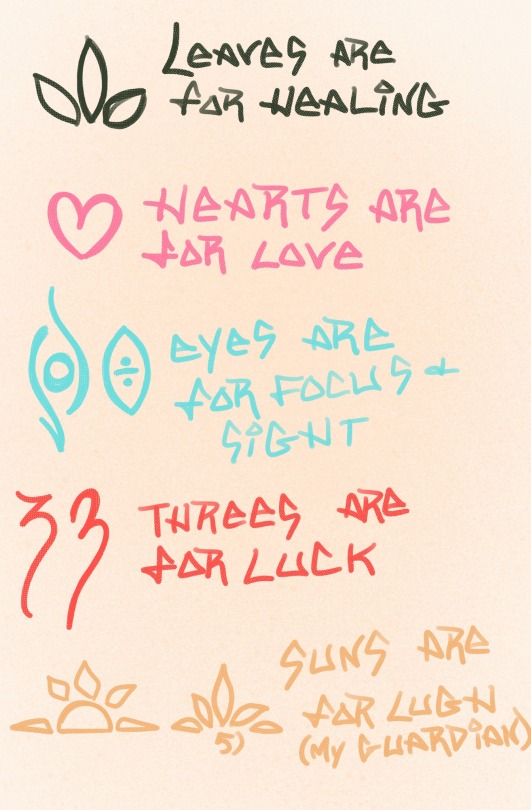 LEAVES ARE
FOR HEALING
HEARTS ARE
FOR LOVE
EYES ARE
FOR FOCUS &
SIGHT
33 THREES ARE
FOR LUCK
SUNS ARE
FOR LUGH
5) (MY GUARDIAN)